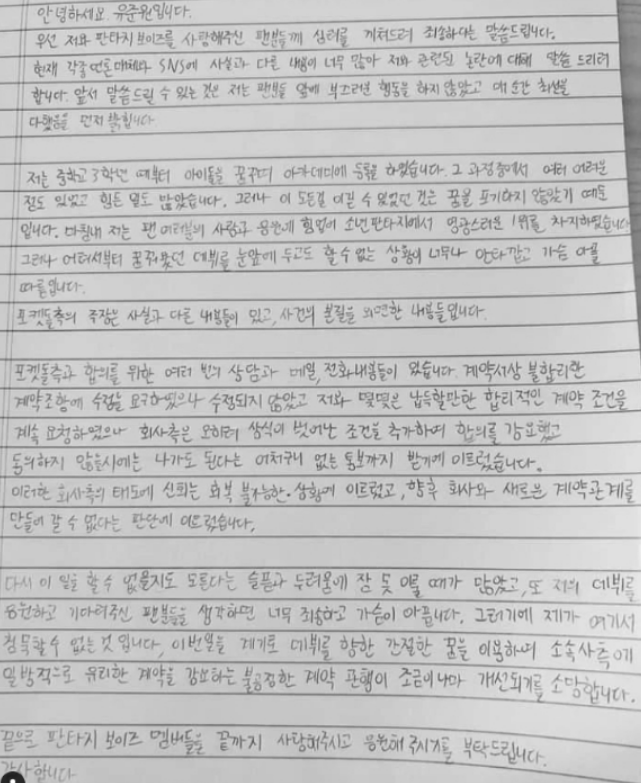 안녕하세요. 유준원입니다.
우선 저와 판타지 보이즈를 사랑해주신 팬분들께 심려를 끼쳐드려 죄송하다는 말씀드립니다.
현재 각종 언론매체와 SNS에 사실과 다른 내용이 너무 많아 저와 관련된 논란에 대해 말씀 드리려
합니다. 앞서 말씀드릴 수 있는것은 저는 팬분들 앞에 부끄러운 행동을 하지 않았고 매 순간 최선을
다했음을 먼저 밝힙니다
저는 중학교 3학년 때부터 아이돌을 꿈꾸며 아카데미에 등록을 하였습니다. 그 과정 중에서 여러 어려운
점도 있었고 힘든 일도 많았습니다. 그러나 이 모든걸 이길 수 있었던 것은 꿈을 포기하지 않았기 때문
입니다. 마침내 저는 팬 여러분의 사랑과 응원에 힘입어 소년판타지에서 영광스러운 1위를 차지하였습니다
그러나 어려서부터 꿈꿔왔던 데뷔를 눈앞에 두고도 할 수 없는 상황이 너무나 안타깝고 가슴 아플
따름입니다.
포켓돌측의 주장은 사실과 다른 내용들이 있고, 사건의 본질을 외면한 내용들입니다.
포켓돌측과 합의를 위한 여러 번의 상담과 메일, 전화내용들이 있습니다. 계약서상 불합리한
계약조항에 수정을 요구하였으나 수정되지 않았고 저와 몇몇은 납득할만한 합리적인 계약 조건을
계속 요청하였으나 회사측은 오히려 상식이 벗어난 조건을 추가하여 합의를 강요했고
동의하지 않을시에는 나가도 된다는 어처구니 없는 통보까지 받기에 이르렀습니다.
이러한 회사측의 태도에 신뢰는 회복 불가능한 상황에 이르렀고, 향후 회사와 새로운 계약관계를
만들어 갈 수 없다는 판단에 이르렀습니다.
다시 이 일을 할 수 없을지도 모른다는 슬픔과 두려움에 잠 못 이룰 때가 많았고, 또 저의 데뷔를
응원하고 기다려주신 팬분들을 생각하면 너무 죄송하고 가슴이 아픕니다. 그러기에 제가 여기서
침묵할 수 없는 것 입니다. 이번일을 계기로 데뷔를 향한 간절한 꿈을 이용하여 소속사측에게
일방적으로 유리한 계약을 강요하는 불공정한 계약 관행이 조금이나마 개선되기를 소망합니다.
끝으로 판타지 보이즈 멤버들을 끝까지 사랑해주시고 응원해 주시기를 부탁드립니다.
감사합니다